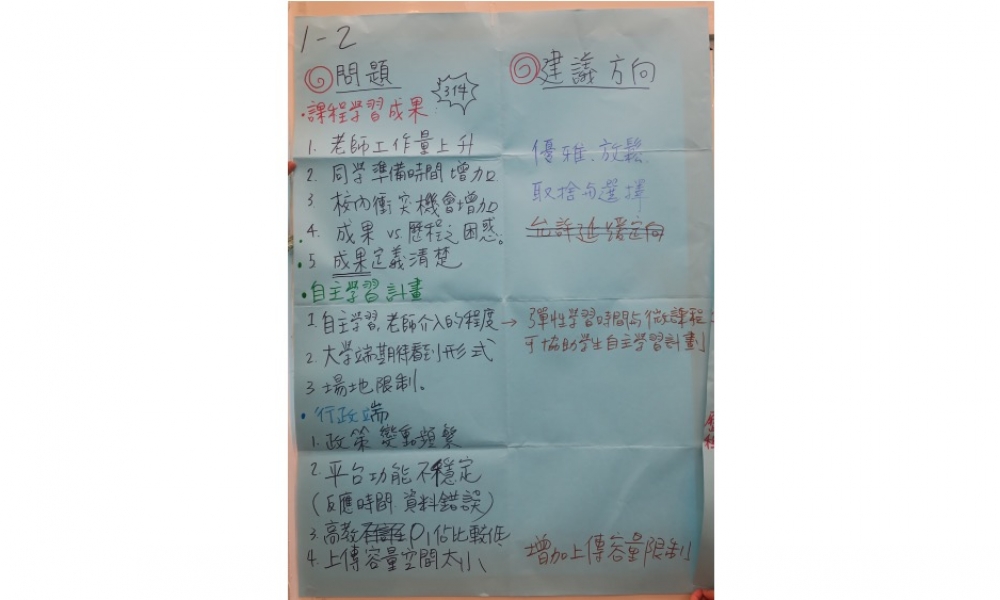 1-2
問題
3件
建議方向
·課程學習成果:
1. 老師工作量上升
2. 同學準備時間增加
3 校內衝突機會增加
4. 成果 vs.歷程之困惑。
·5 成果定義清楚
優雅、放鬆
取捨与選擇
允許延緩定向
·自主學習計畫
1 自主學習,老師介入的程度 → 彈性學習時間与微課程
可協助學生自主學習計劃
2. 大學端期待看到形式
3 場地限制。
·行政端
1. 政策變動頻繁
2. 平台功能不穩定
(反應時間.資料錯誤)
3. 高教 P1佔比較低
4. 上傳容量空間太小
增加上傳容量限制